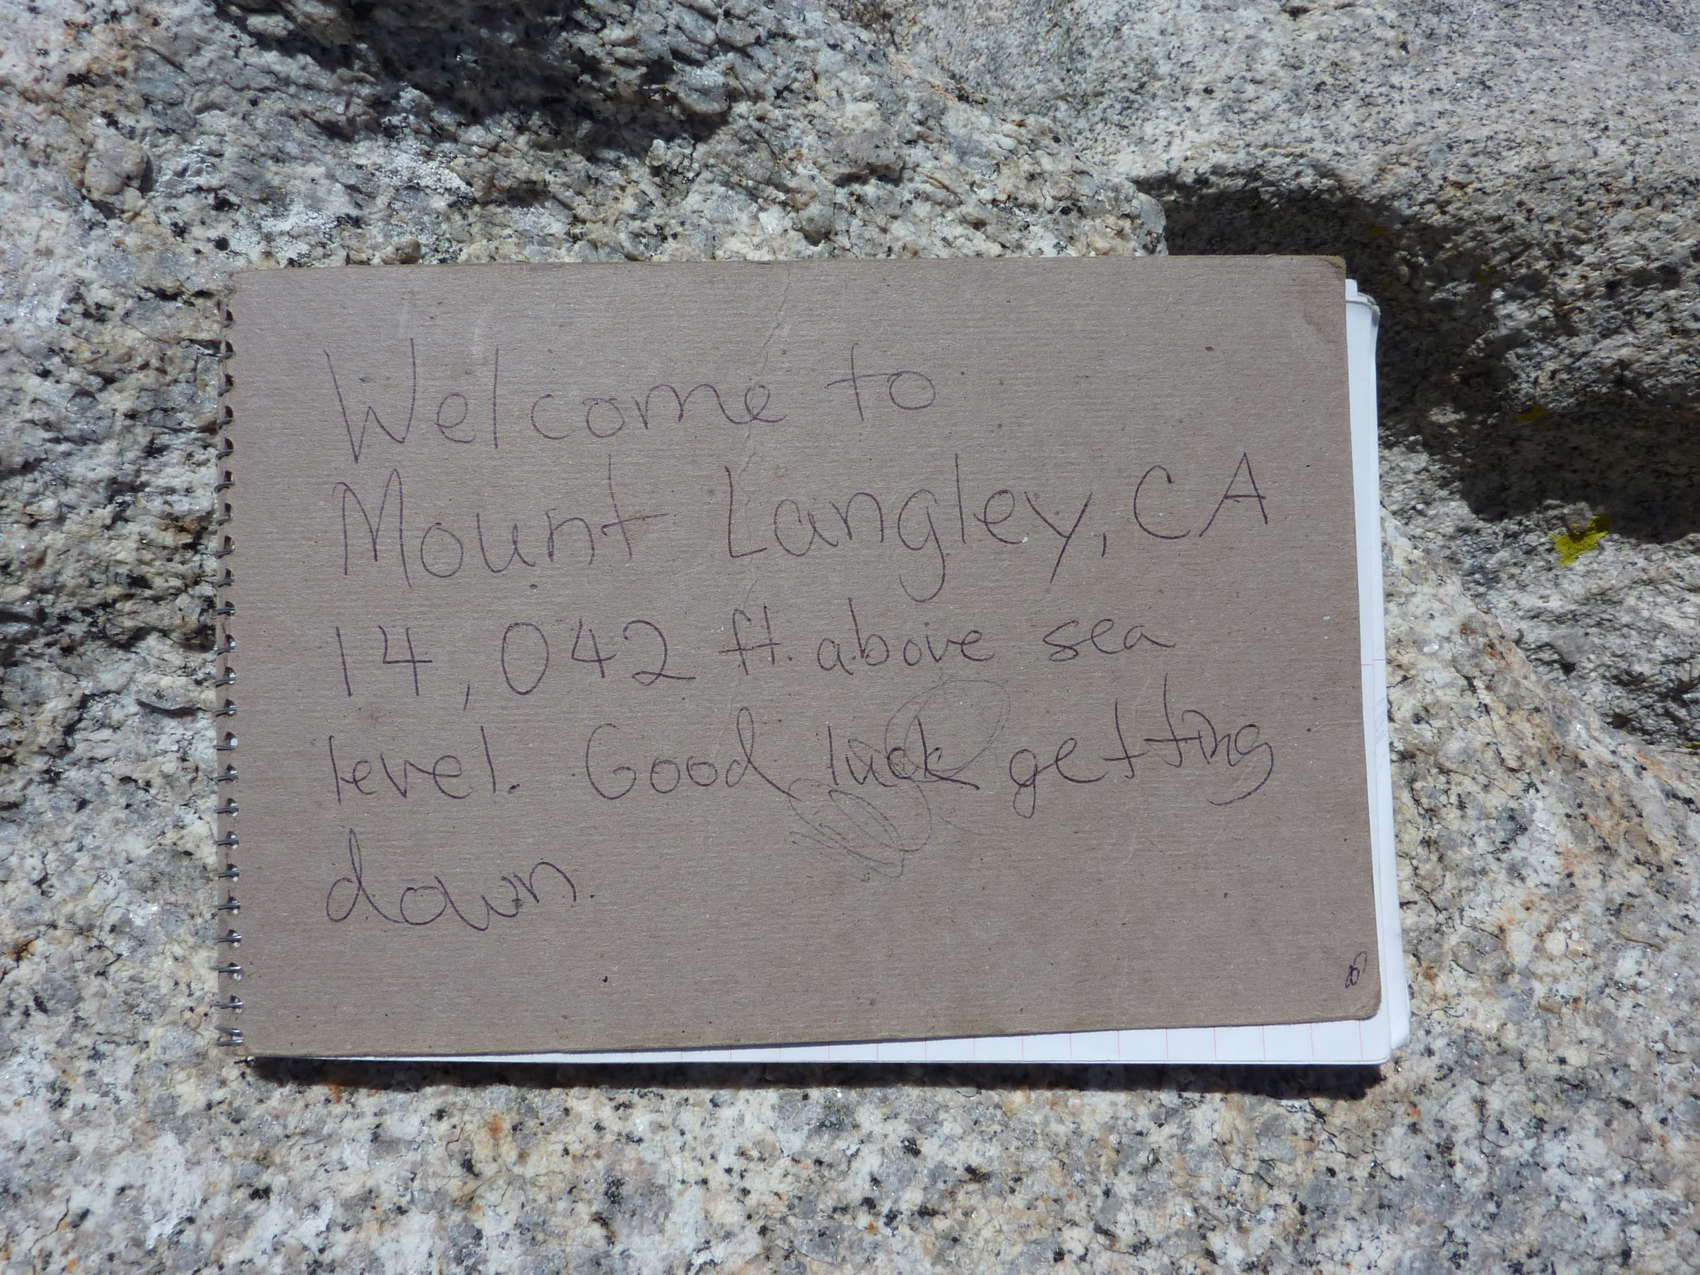 Welcome to
Mount Langley, CA
14,042 ft. above sea
level. Good luck getting
down.